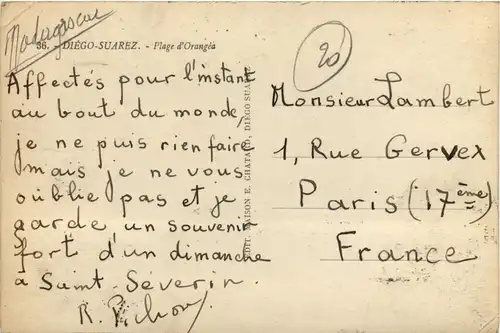 Madagascar
36. - DIÉGO-SUAREZ. - Plage d'Orangéa
Affectés pour l'instant
au bout du monde,
je ne puis rien faire
mais je ne vous
oublie pas et je
garde un souvenir
fort d'un dimanche
à Saint-Séverin.
R. Pichon
EDIT. MAISON E. CHATARD, DIÉGO SUAREZ
20
Monsieur Lambert
1, Rue Gervex
Paris (17ème)
France